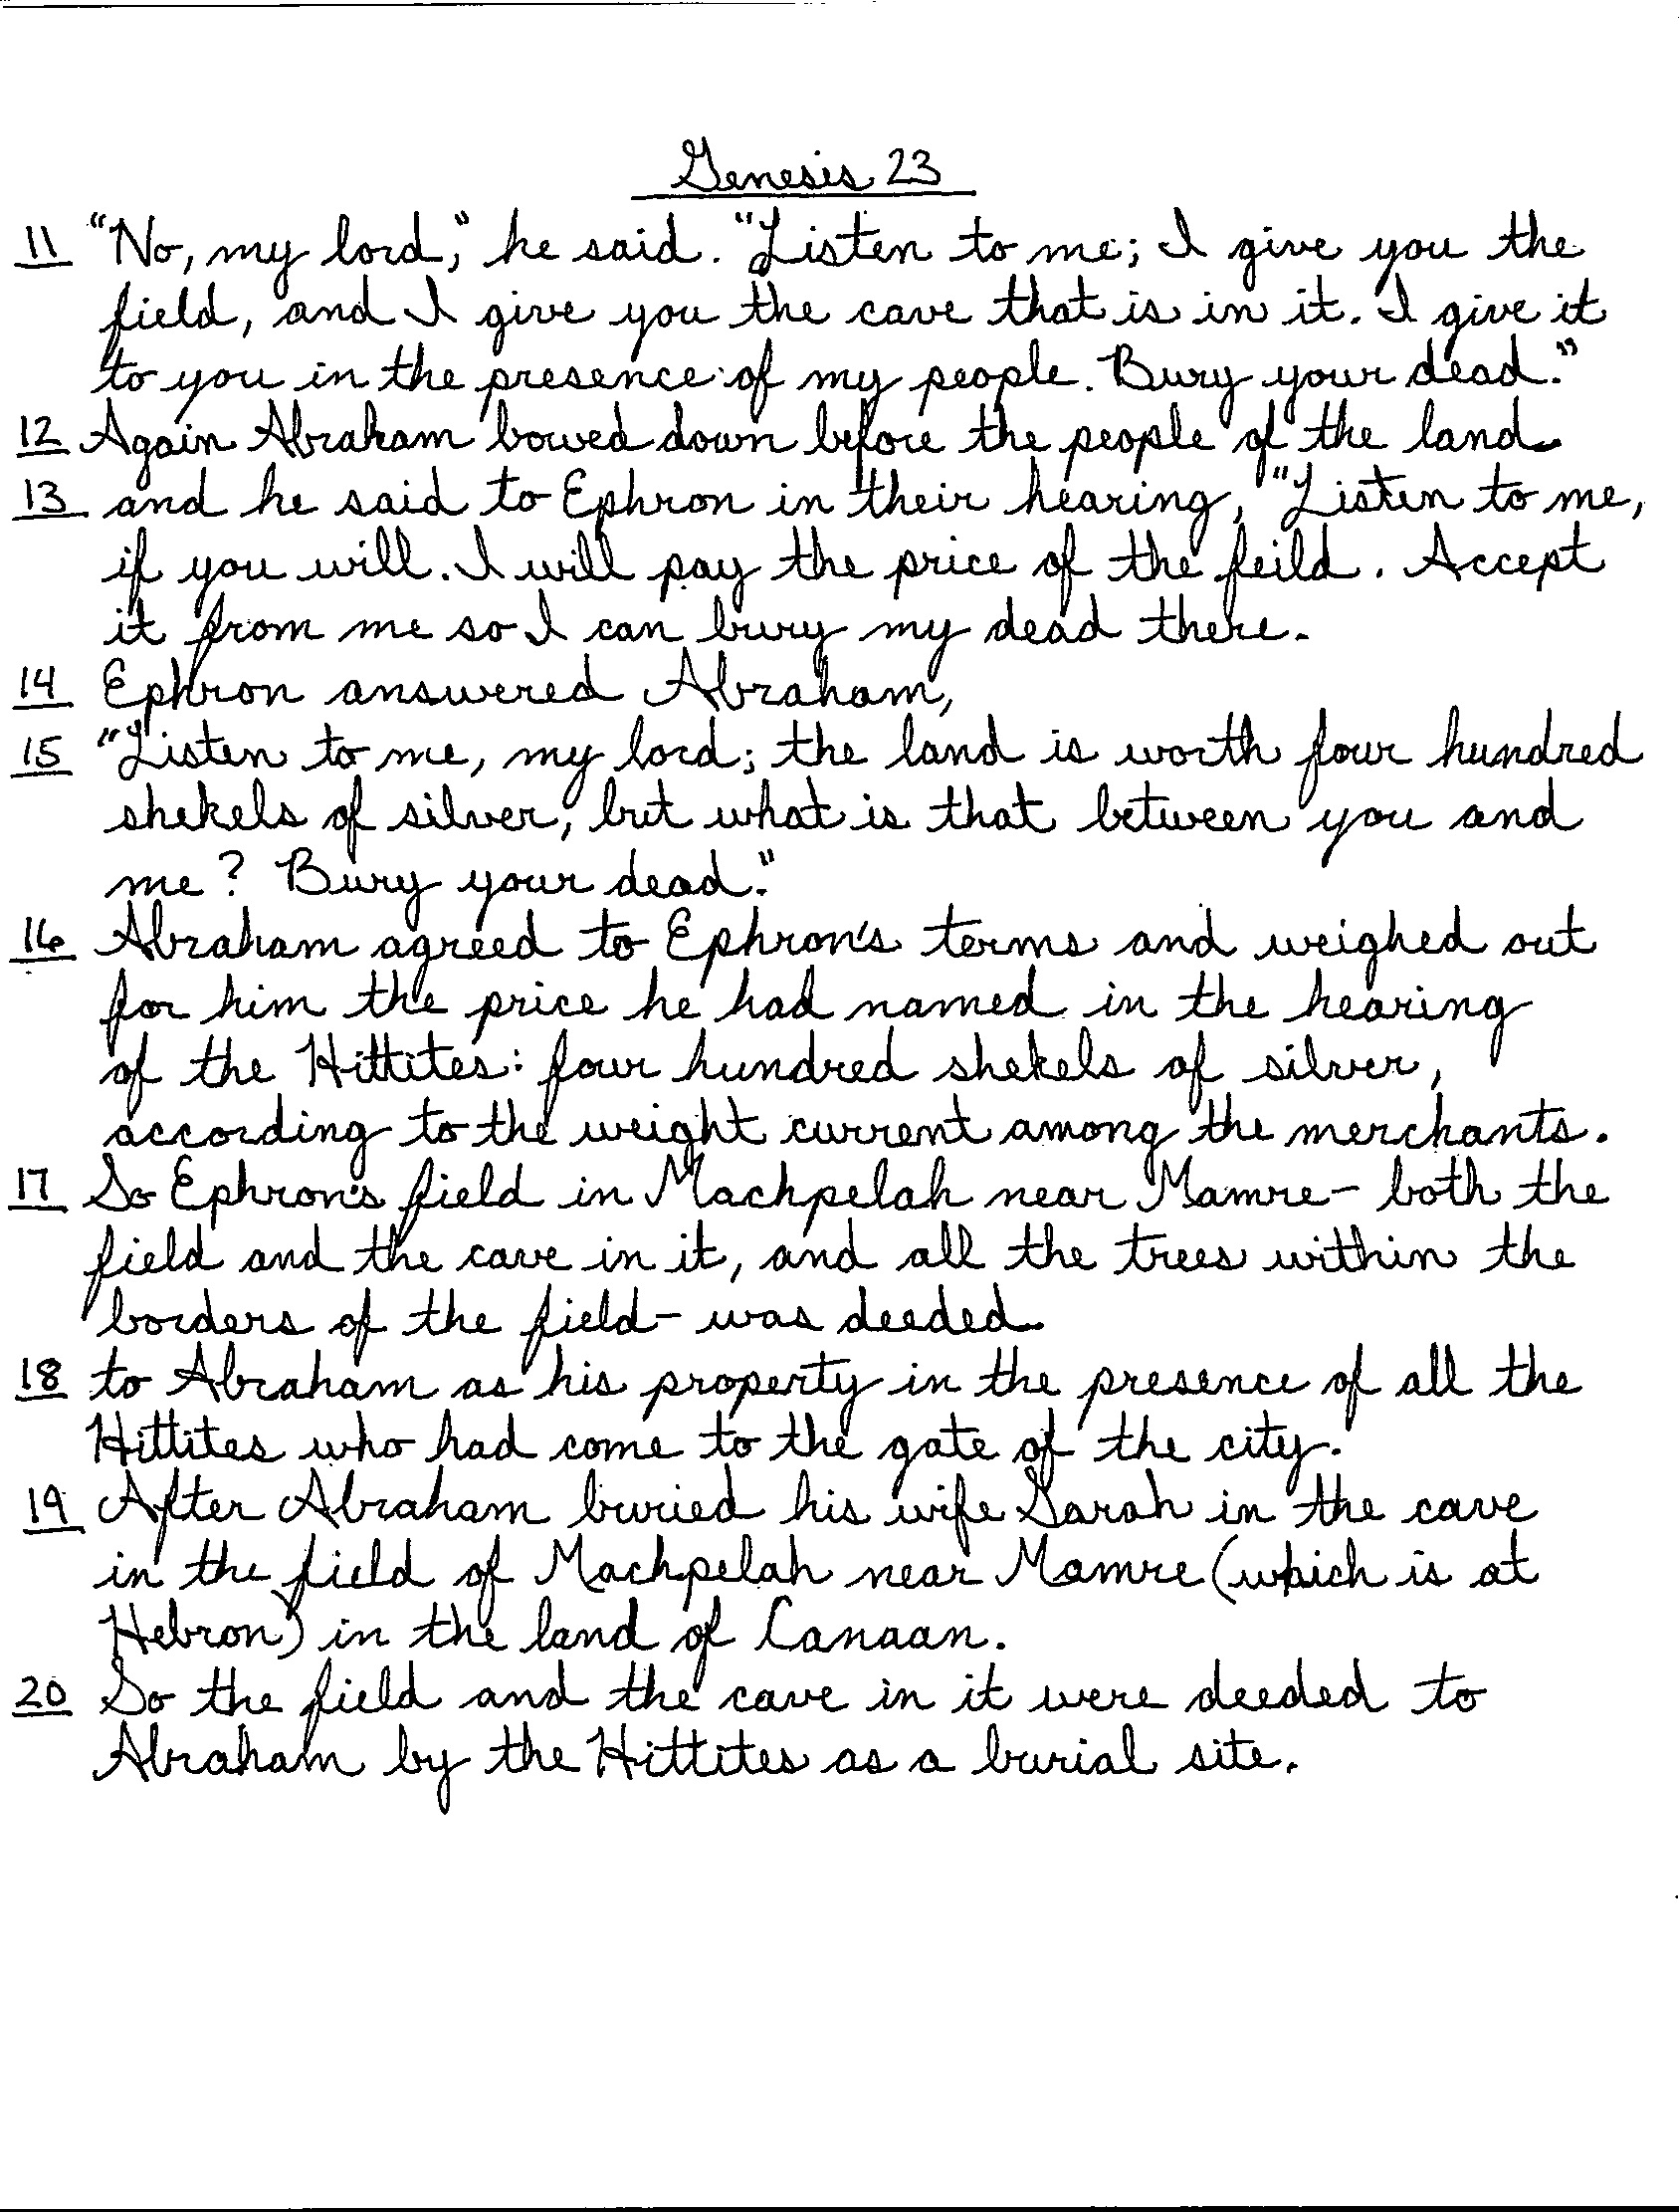 Genesis 23
11 "No, my lord," he said. "Listen to me; I give you the
field, and I give you the cave that is in it. I give it
to you in the presence of my people. Bury your dead."
12 Again Abraham bowed down before the people of the land
13 and he said to Ephron in their hearing, "Listen to me,
if you will. I will pay the price of the feild. Accept
it from me so I can bury my dead there.
14 Ephron answered Abraham,
15 "Listen to me, my lord; the land is worth four hundred
shekels of silver, but what is that between you and
me? Bury your dead."
16 Abraham agreed to Ephron's terms and weighed out
for him the price he had named in the hearing
of the Hittites: four hundred shekels of silver,
according to the weight current among the merchants.
17 So Ephron's field in Machpelah near Mamre - both the
field and the cave in it, and all the trees within the
borders of the field - was deeded
18 to Abraham as his property in the presence of all the
Hittites who had come to the gate of the city.
19 After Abraham buried his wife Sarah in the cave
in the field of Machpelah near Mamre (which is at
Hebron) in the land of Canaan.
20 So the field and the cave in it were deeded to
Abraham by the Hittites as a burial site.